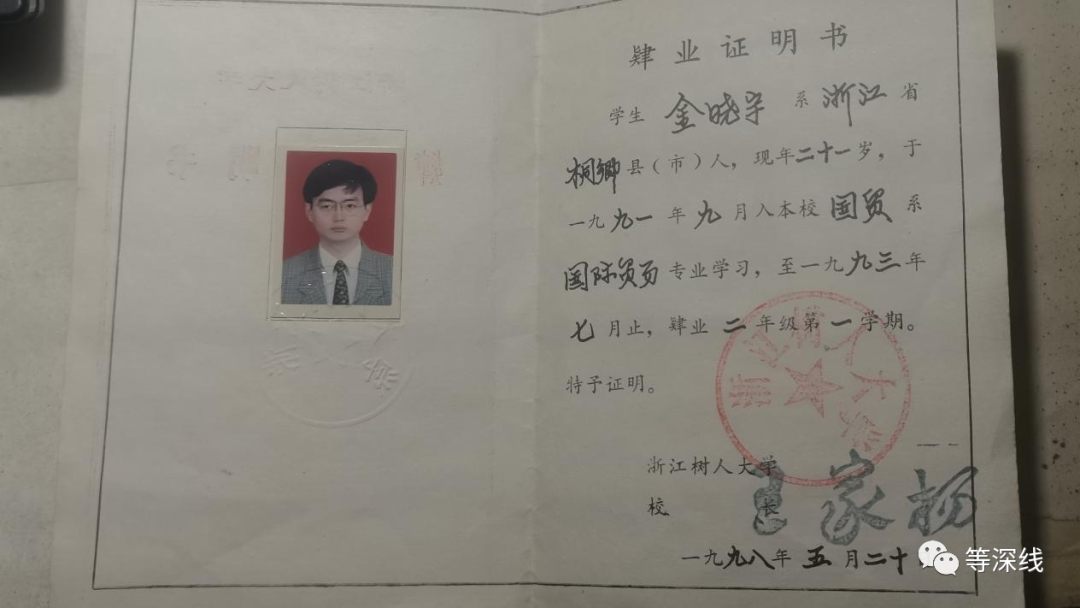 肄业证明书
学生 金晓宇 系 浙江 省
桐乡县（市）人，现年二十一岁，于
一九九一年九月入本校国贸系
国际贸易专业学习，至一九九三年
七月止，肄业二年级第一学期。
特予证明。
浙江树人大学
浙江树人大学
校 长 王家扬
一九九八年五月二十
等深线